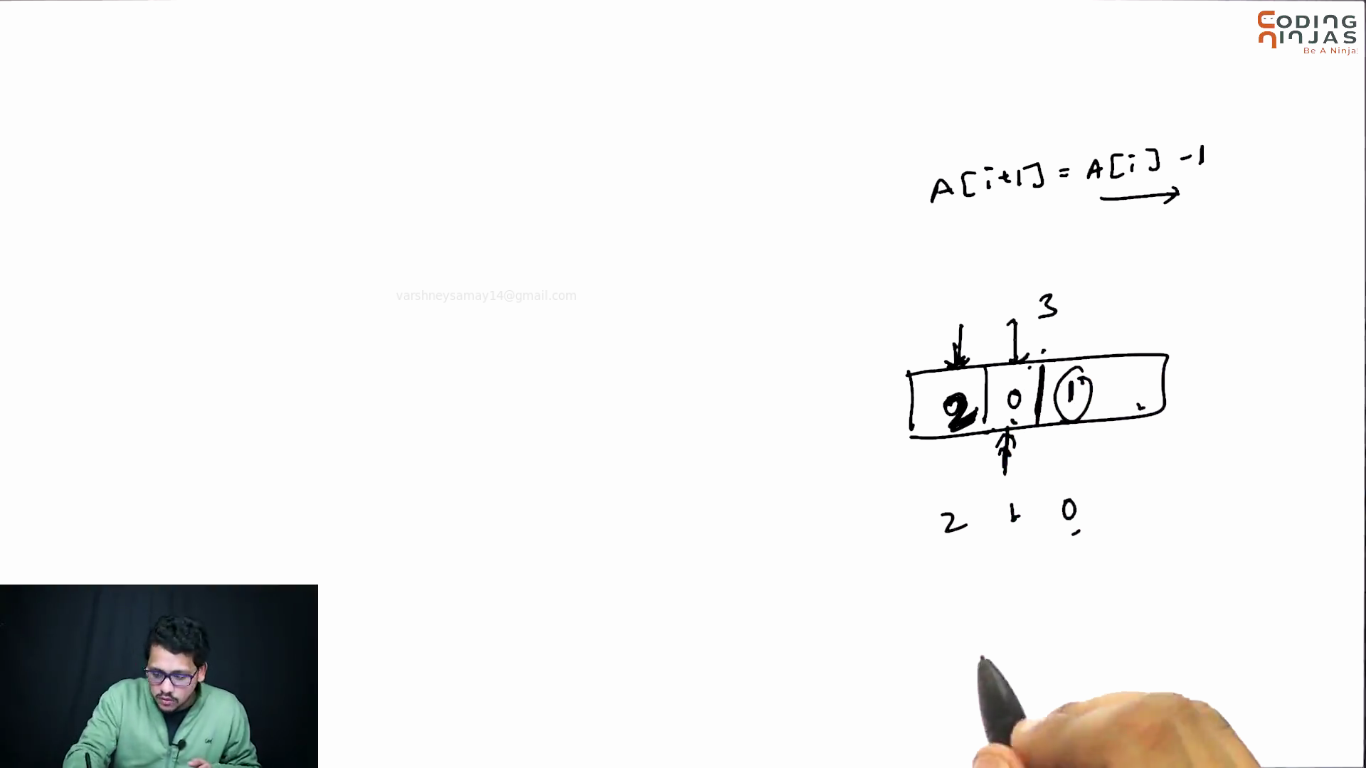 CODING
NINJAS
Be A Ninja
A[i+1] = A[i] -1
varshneysamay14@gmail.com
3
2 0 1
2 1 0